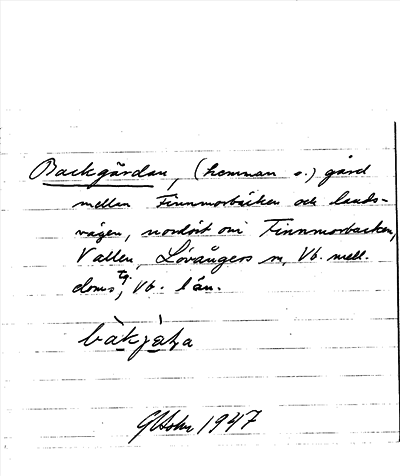 Backgårdan, (hemman o.) gård
mellan Finnmorbäcken och lands-
vägen, nordöst om Finnmorbacken,
Vallen, Lövångers sn, Vb. mell.
doms tg., Vb. län.
bàkjaɳa
1947